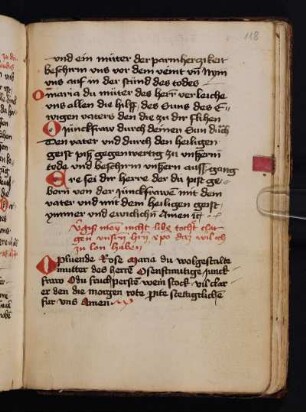 118
vnd ein müter der parmhertzikeit
beschirm vns vor dem veint vñ Nym
vns auf in der stünd des todes
O maria du müter des herrn verleiche
vns allen die hilff des Suns des E
wigen vaters den die zu dir flihen
O Junckfraw durch deinen Sun durch
den vater vnd durch den heiligen
geist piß gegenwertig zu vnserm
ende vnd beschirm vnsern auß gang
Ere sei dir herre der du pist ge
born von der junckfrawen mit dem
vater vnd mit dem heiligen geist
ymmer vnd ewiclich Amen
nicht
zu lon haben
O plüende Rose Maria du wolgestalte
mutter des herrn junck
fraw Du fruchperste wein stock vil clar
er den die morgen rote pite stetigcliche
für vns Amen